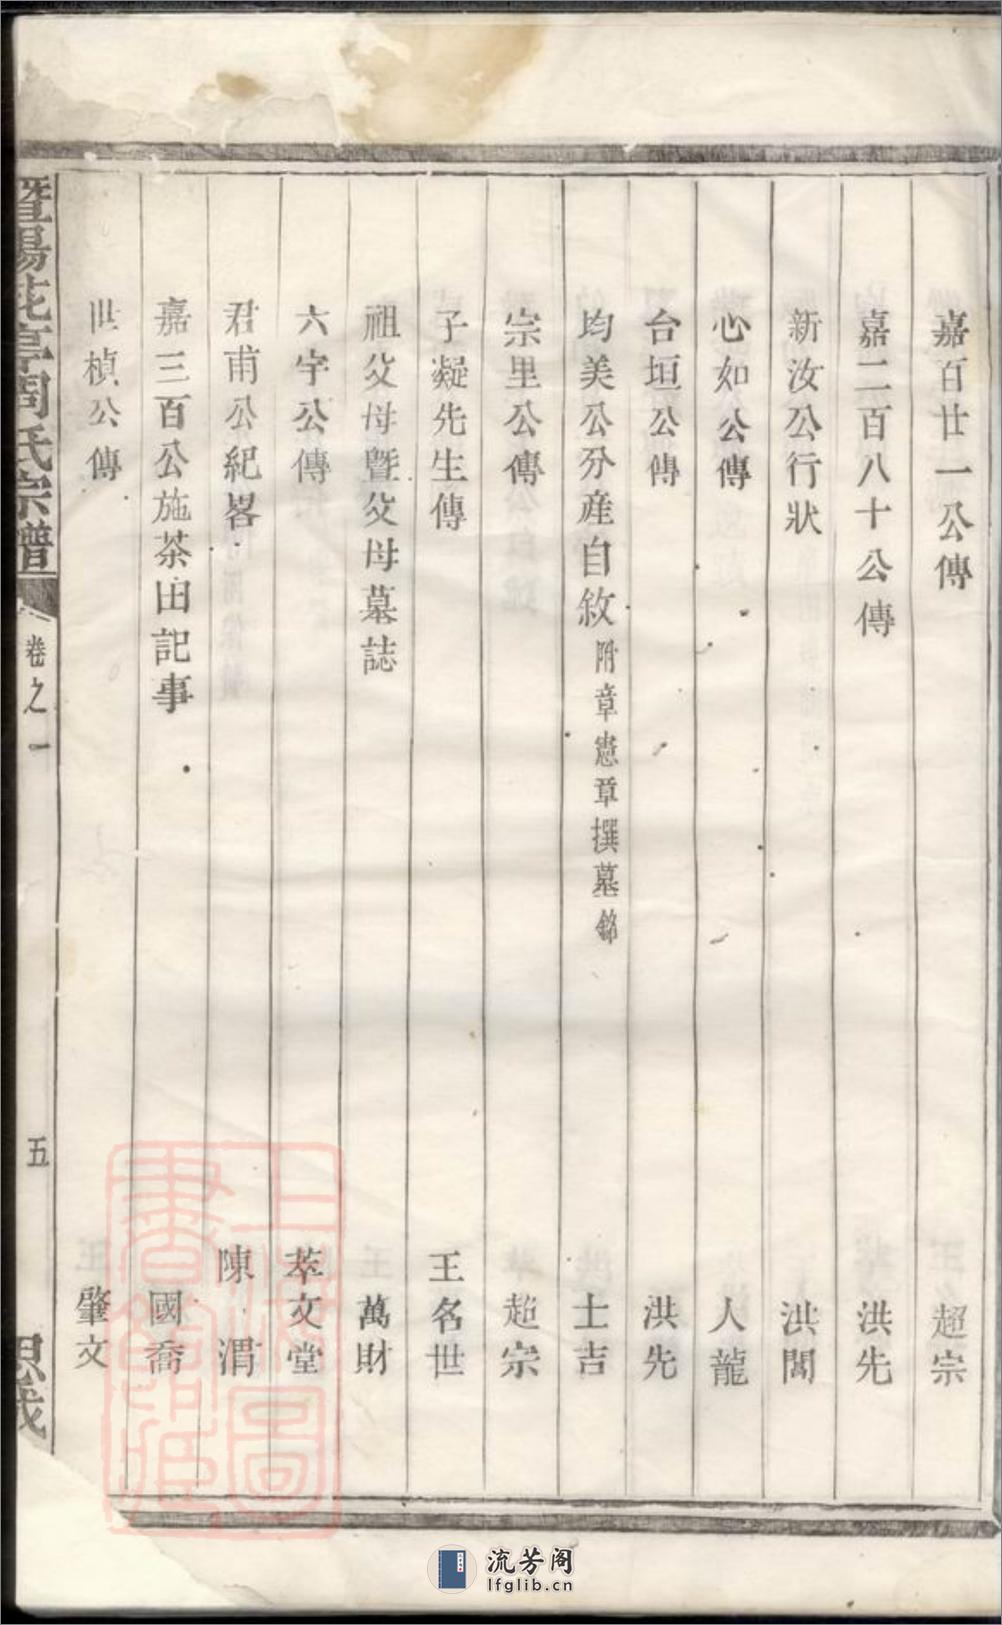 嘉百廿一公傳 超宗
嘉二百八十公傳 洪先
新汝公行狀 洪闓
心如公傳 人龍
台垣公傳 洪先
均美公分産自敘 附章憲章撰墓銘 士吉
宗里公傳 超宗
子凝先生傳 王名世
祖父母曁父母墓誌 萬財
六宇公傳 萃文堂
君甫公紀畧 陳渭
嘉三百公施茶田記事 國喬
世楨公傳 肇文
暨陽花亭周氏宗譜 卷之一 五
上海圖書館藏
流芳阁
lfglib.cn